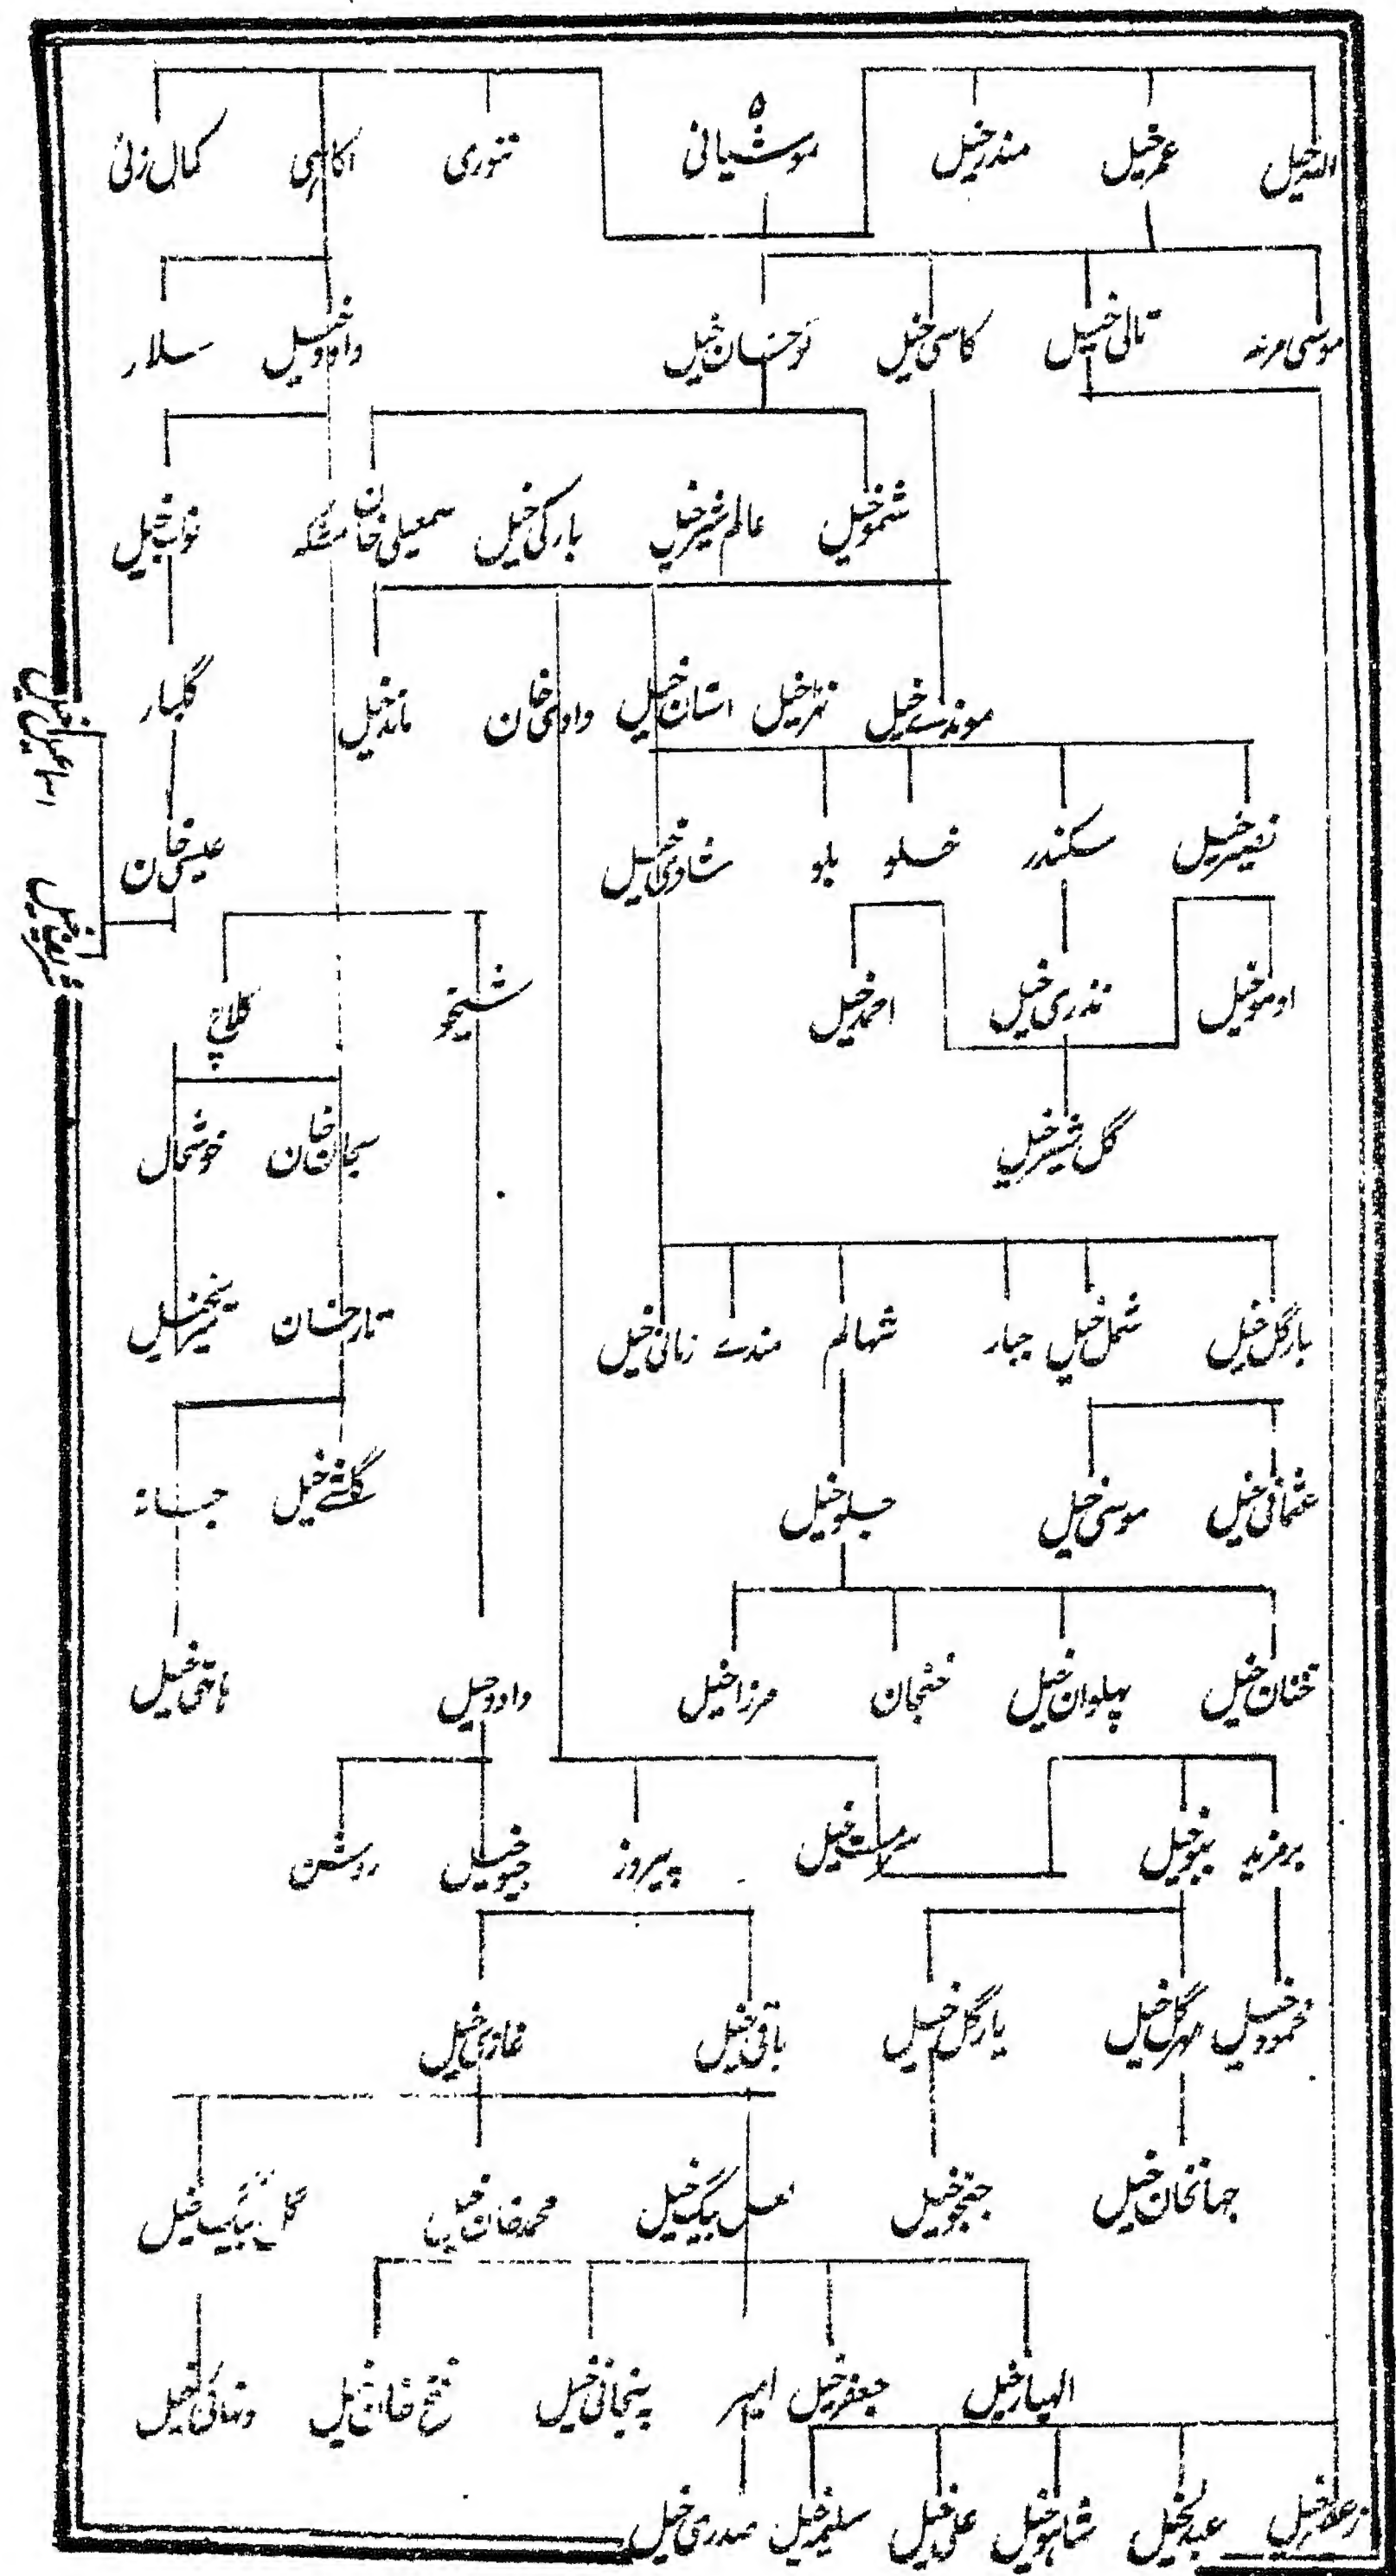 اللہ خیل عمر خیل مندر خیل ۵ موشیانی تنوری اکاہی کمال زئی
موسی مرنہ تالی خیل کاسی خیل نوحسان خیل داودخیل سلار
شموخیل عالم شیرخیل بارکی خیل سمعیلی خان مشکہ نواب خیل
موندے خیل نہرخیل استان خیل داودی خان ماندخیل گلبار
نصیر خیل سکندر خسلو بلو شادی خیل عیسی خان
اوموخیل نذری خیل احمد خیل شیخو کلاچ
گل شیر خیل سبحان خان خوشحال
بارگل خیل شمل خیل جبار شہالم مندے زمانی خیل تارخان
عثمانی خیل موسی خیل جلوخیل گلشے خیل جانہ
ختنان خیل پہلوان خیل خنجان مرزا خیل داودخیل ہاتھی خیل
برمزید ببوخیل سرمست خیل پیروز جیوخیل روشن
محمود خیل مہرگل خیل یارگل خیل باقی خیل غازی خیل
جہانخان خیل جنجوخیل لعل بیگ خیل محمد خان خیل گل بیگ خیل
الہیار خیل جعفر خیل امیر پنجانی خیل فتح خان خیل
عبدل خیل شاہوخیل علی خیل سلیم خیل صدری خیل